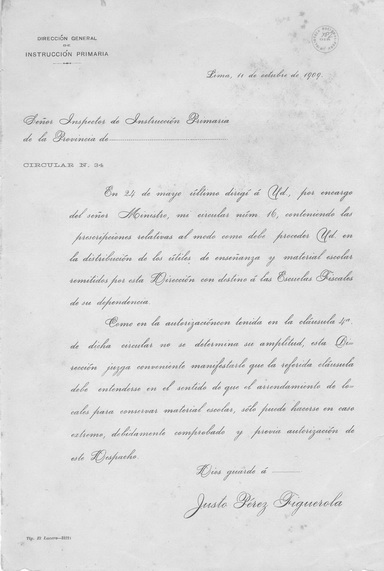 DIRECCIÓN GENERAL
DE
INSTRUCCIÓN PRIMARIA
Lima, 11 de octubre de 1909.
Señor Inspector de Instrucción Primaria
de la Provincia de
CIRCULAR N. 34
En 24 de mayo último dirigí á Ud., por encargo
del señor Ministro, mi circular núm. 16, conteniendo las
prescripciones relativas al modo como debe proceder Ud. en
la distribución de los útiles de enseñanza y material escolar
remitidos por esta Dirección con destino á las Escuelas Fiscales
de su dependencia.
Como en la autorización con tenida en la cláusula 4ª.
de dicha circular no se determina su amplitud, esta Di-
rección juzga conveniente manifestarle que la referida cláusula
debe entenderse en el sentido de que el arrendamiento de lo-
cales para conservar material escolar, sólo puede hacerse en caso
extremo, debidamente comprobado y previa autorización de
este Despacho.
Dios guarde á
Justo Pérez Figuerola
Tip. El Lucero